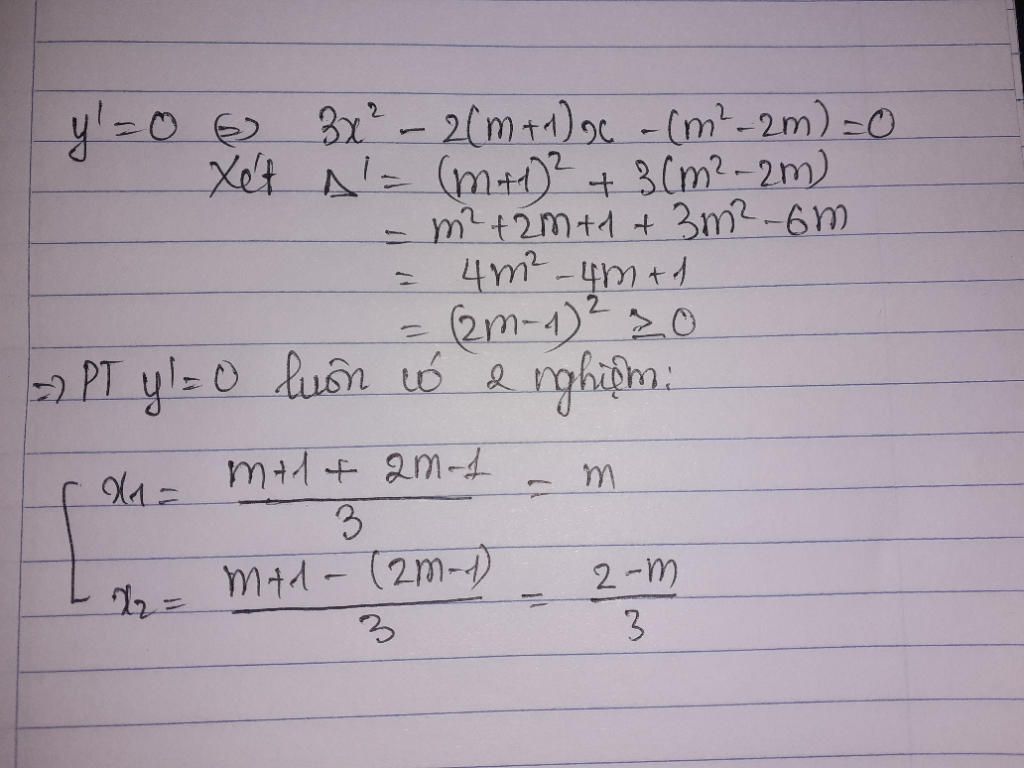 y' = 0 ⇔ 3x² - 2(m+1)x - (m² - 2m) = 0
Xét Δ' = (m+1)² + 3(m² - 2m)
= m² + 2m + 1 + 3m² - 6m
= 4m² - 4m + 1
= (2m-1)² ≥ 0
=> PT y' = 0 luôn có 2 nghiệm:
[ x₁ = (m+1 + 2m-1)/3 = m
x₂ = (m+1 - (2m-1))/3 = (2-m)/3